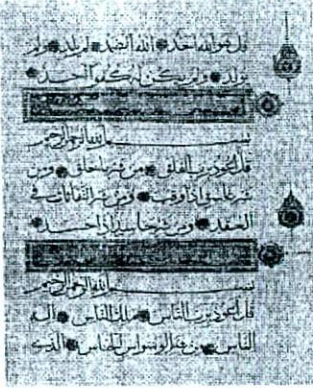 قل هو الله احد الله الصمد لم يلد ولم
يولد ولم يكن له كفوا احد
بسم الله الرحمن الرحيم
قل اعوذ برب الفلق من شر ما خلق ومن
شر غاسق اذا وقب ومن شر النفاثات في
العقد ومن شر حاسد اذا حسد
بسم الله الرحمن الرحيم
قل اعوذ برب الناس ملك الناس اله
الناس من شر الوسواس الخناس الذي